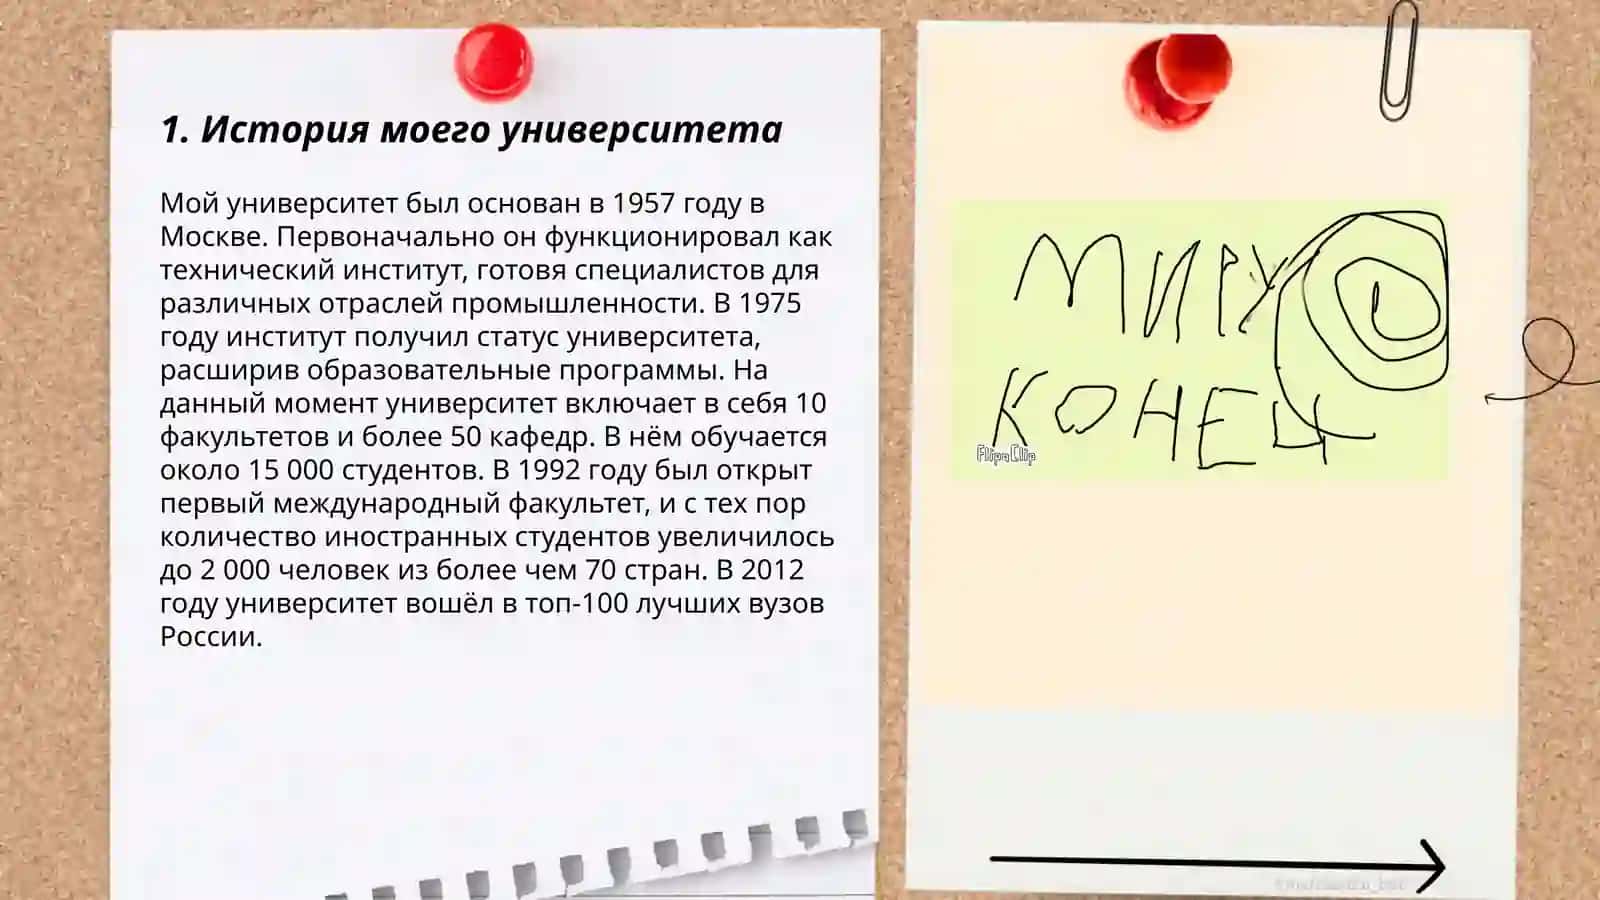 1. История моего университета
Мой университет был основан в 1957 году в
Москве. Первоначально он функционировал как
технический институт, готовя специалистов для
различных отраслей промышленности. В 1975
году институт получил статус университета,
расширив образовательные программы. На
данный момент университет включает в себя 10
факультетов и более 50 кафедр. В нём обучается
около 15 000 студентов. В 1992 году был открыт
первый международный факультет, и с тех пор
количество иностранных студентов увеличилось
до 2 000 человек из более чем 70 стран. В 2012
году университет вошёл в топ-100 лучших вузов
России.
МИРУ
КОНЕЦ
FlipaClip